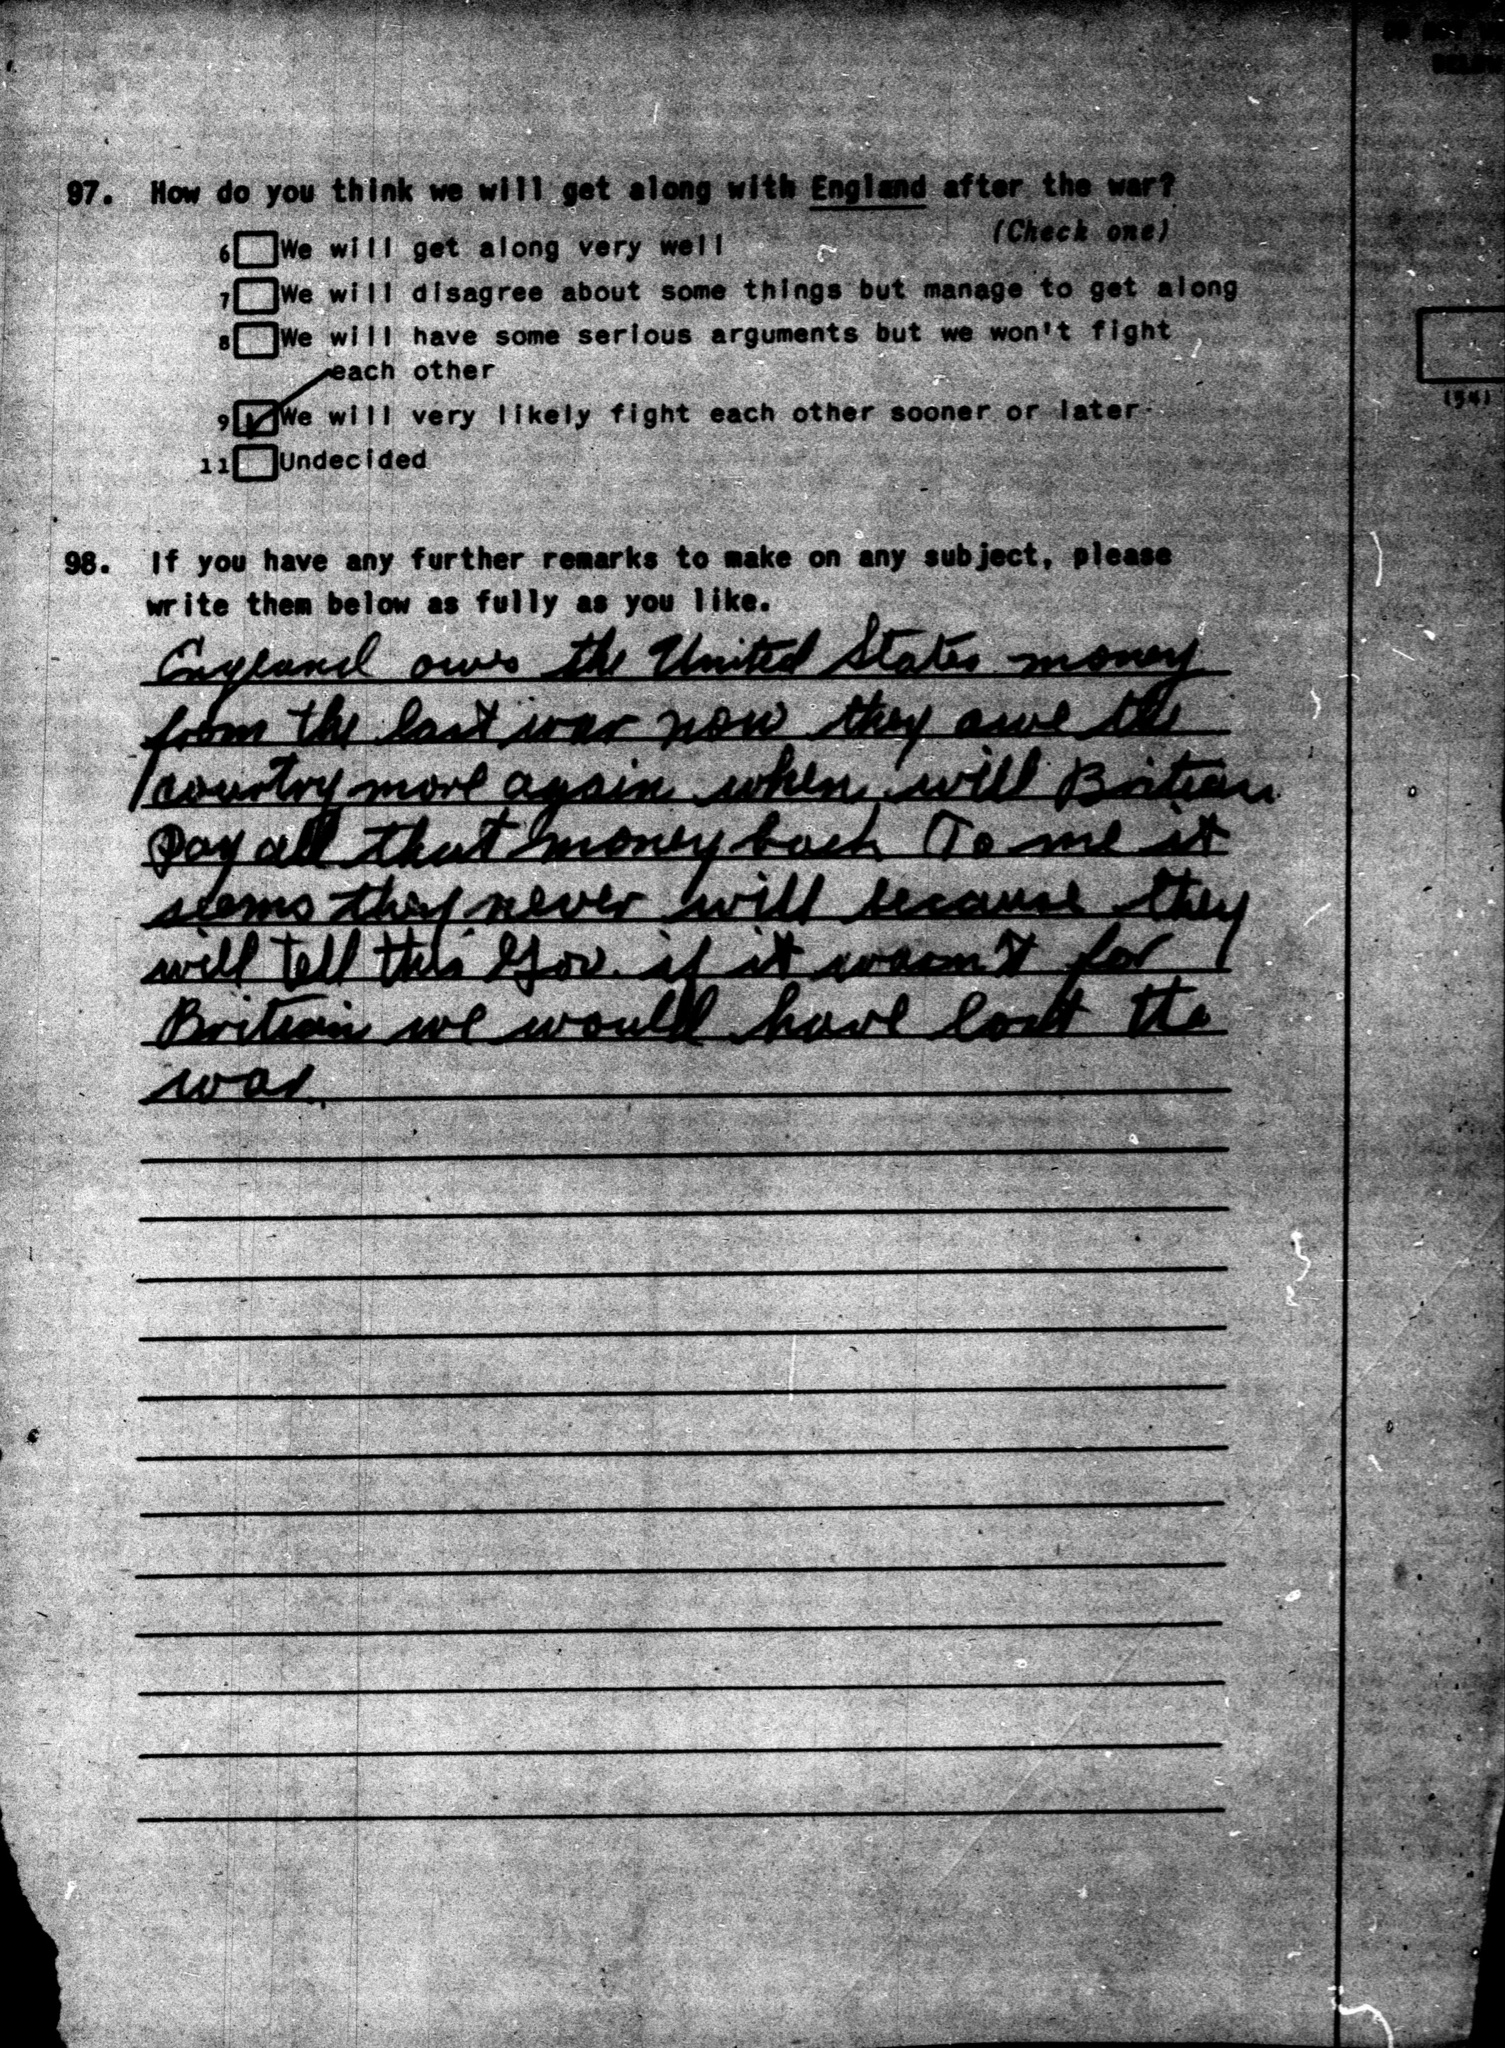 97. How do you think we will get along with England after the war?
(Check one)
6 We will get along very well
7 We will disagree about some things but manage to get along
8 We will have some serious arguments but we won't fight
each other
9 We will very likely fight each other sooner or later
11 Undecided
(54)
98. If you have any further remarks to make on any subject, please
write them below as fully as you like.
England owes the United States money
from the last war now they owe the
country more again when will Britian
Pay all that money back To me it
seems they never will because they
will tell this Gov. if it wasn't for
Britian we would have lost the
war.